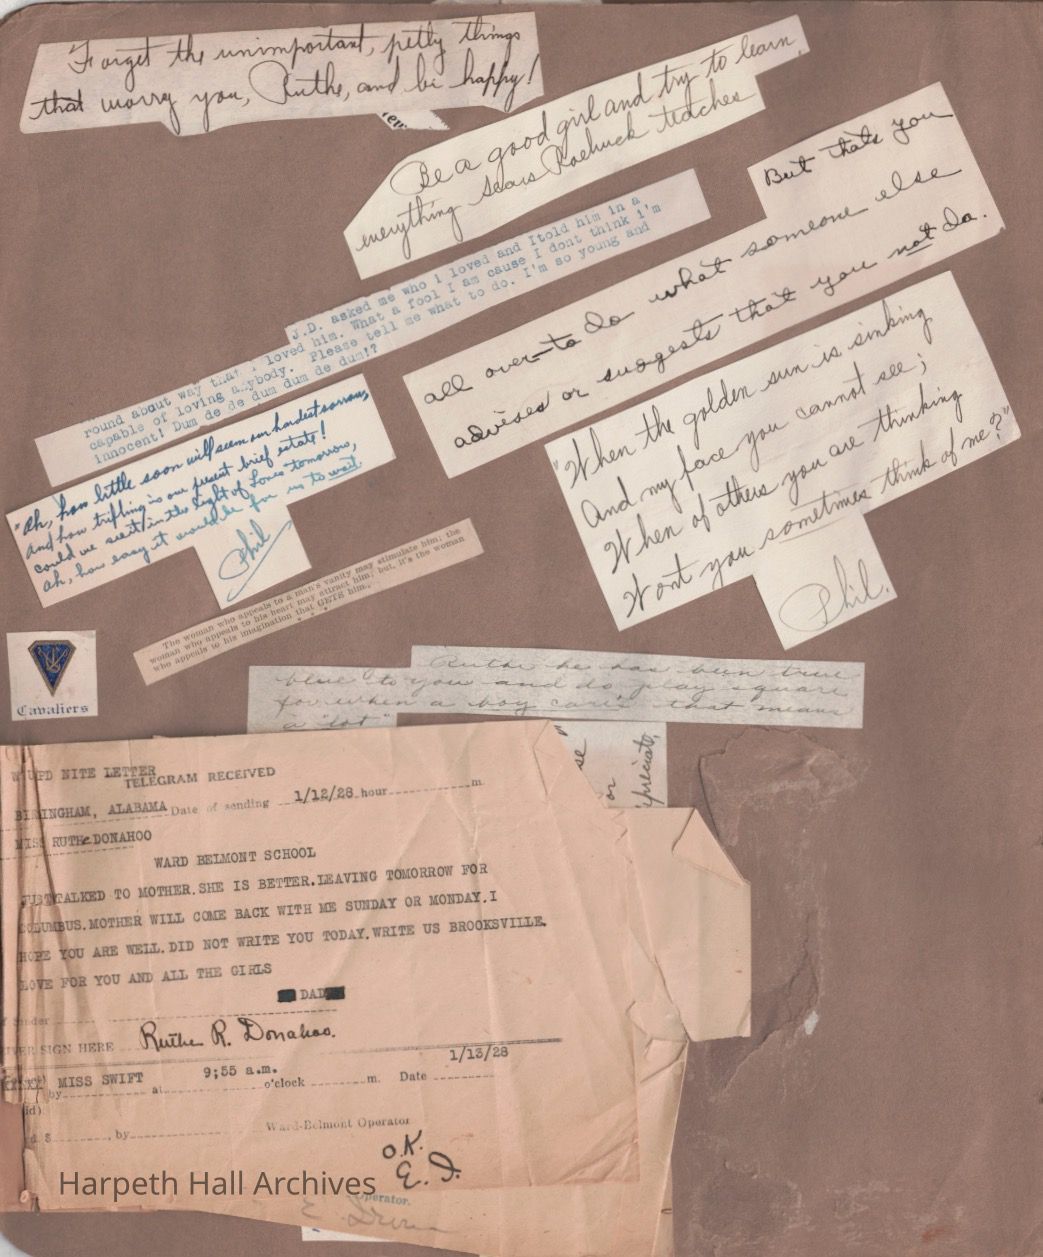 Forget the unimportant, petty things
that worry you, Ruthe, and be happy!
Be a good girl and try to learn
everything Sears Roebuck teaches
But thats you
all over—to do what someone else
advises or suggests that you not do.
J.D. asked me who i loved and Itold him in a
round about way that I loved him. What a fool I am cause I dont think i'm
capable of loving anybody. Please tell me what to do. I'm so young and
innocent! Dum de de dum dum de dum!?
"Ah, how little soon will seem our hardest sorrow,
and how trifling is our present brief estate!
Could we see it in the light of Loves tomorrow,
Ah, how easy it would be for us to wait
Phil
"When the golden sun is sinking
And my face you cannot see;
When of others you are thinking
Wont you sometimes think of me?"
Phil.
The woman who appeals to a man's vanity may stimulate him; the
woman who appeals to his heart may attract him; but, it's the woman
who appeals to his imagination that GETS him.
Cavaliers
Ruthe he has been true
blue to you and do play square
for when a boy cares that means
a "lot"
or
NITE LETTER
TELEGRAM RECEIVED
BIRMINGHAM, ALABAMA Date of sending 1/12/28 hour m.
MISS RUTHe DONAHOO
WARD BELMONT SCHOOL
JUST TALKED TO MOTHER.SHE IS BETTER.LEAVING TOMORROW FOR
COLUMBUS.MOTHER WILL COME BACK WITH ME SUNDAY OR MONDAY.I
HOPE YOU ARE WELL.DID NOT WRITE YOU TODAY.WRITE US BROOKSVILLE.
LOVE FOR YOU AND ALL THE GIRLS
DAD
Ruthe R. Donahoo.
SIGN HERE
1/13/28
MISS SWIFT 9;55 a.m.
by at o'clock m. Date
$ , by Ward-Belmont Operator
O.K.
E. D.
Harpeth Hall Archives
Operator.